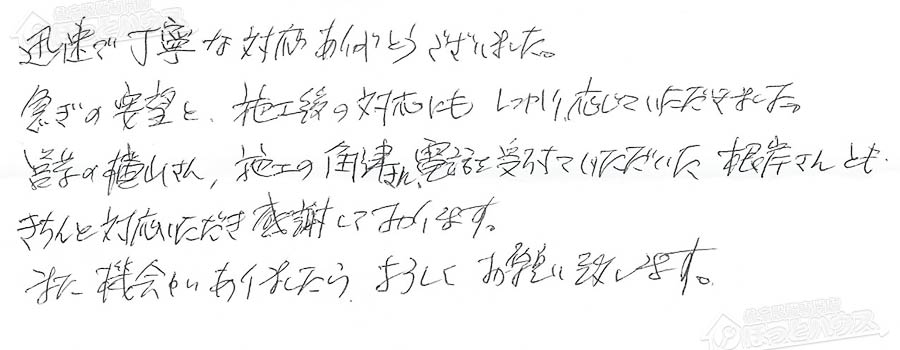 迅速で丁寧な対応ありがとうございました。
急ぎの要望と、施工後の対応にもしっかり応じていただきました。
営業の横山さん、施工の角津さん、電話を受付ていただいた根岸さんとも
きちんと対応いただき感謝しております。
また機会がありましたら、よろしくお願い致します。
住宅設備専門店
ほっとハウス
住宅設備専門店
ほっとハウス